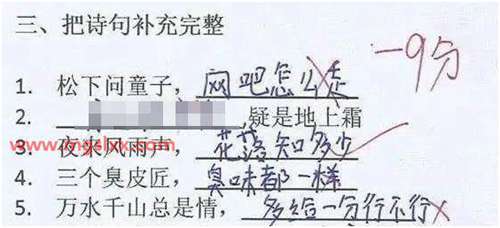 三、把诗句补充完整
-9分
1. 松下问童子，网吧怎么走
2. ，疑是地上霜
3. 夜来风雨声，花落知多少
4. 三个臭皮匠，臭味都一样
5. 万水千山总是情，多给一分行不行